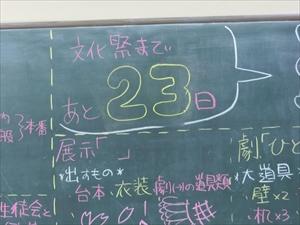 文化祭まで
あと23日
内
服
本番
展示「　」
*出すもの*
台本、衣装、劇(小)の道具類
生徒会と
劇「ひと
*大道具*
壁×2
机×3